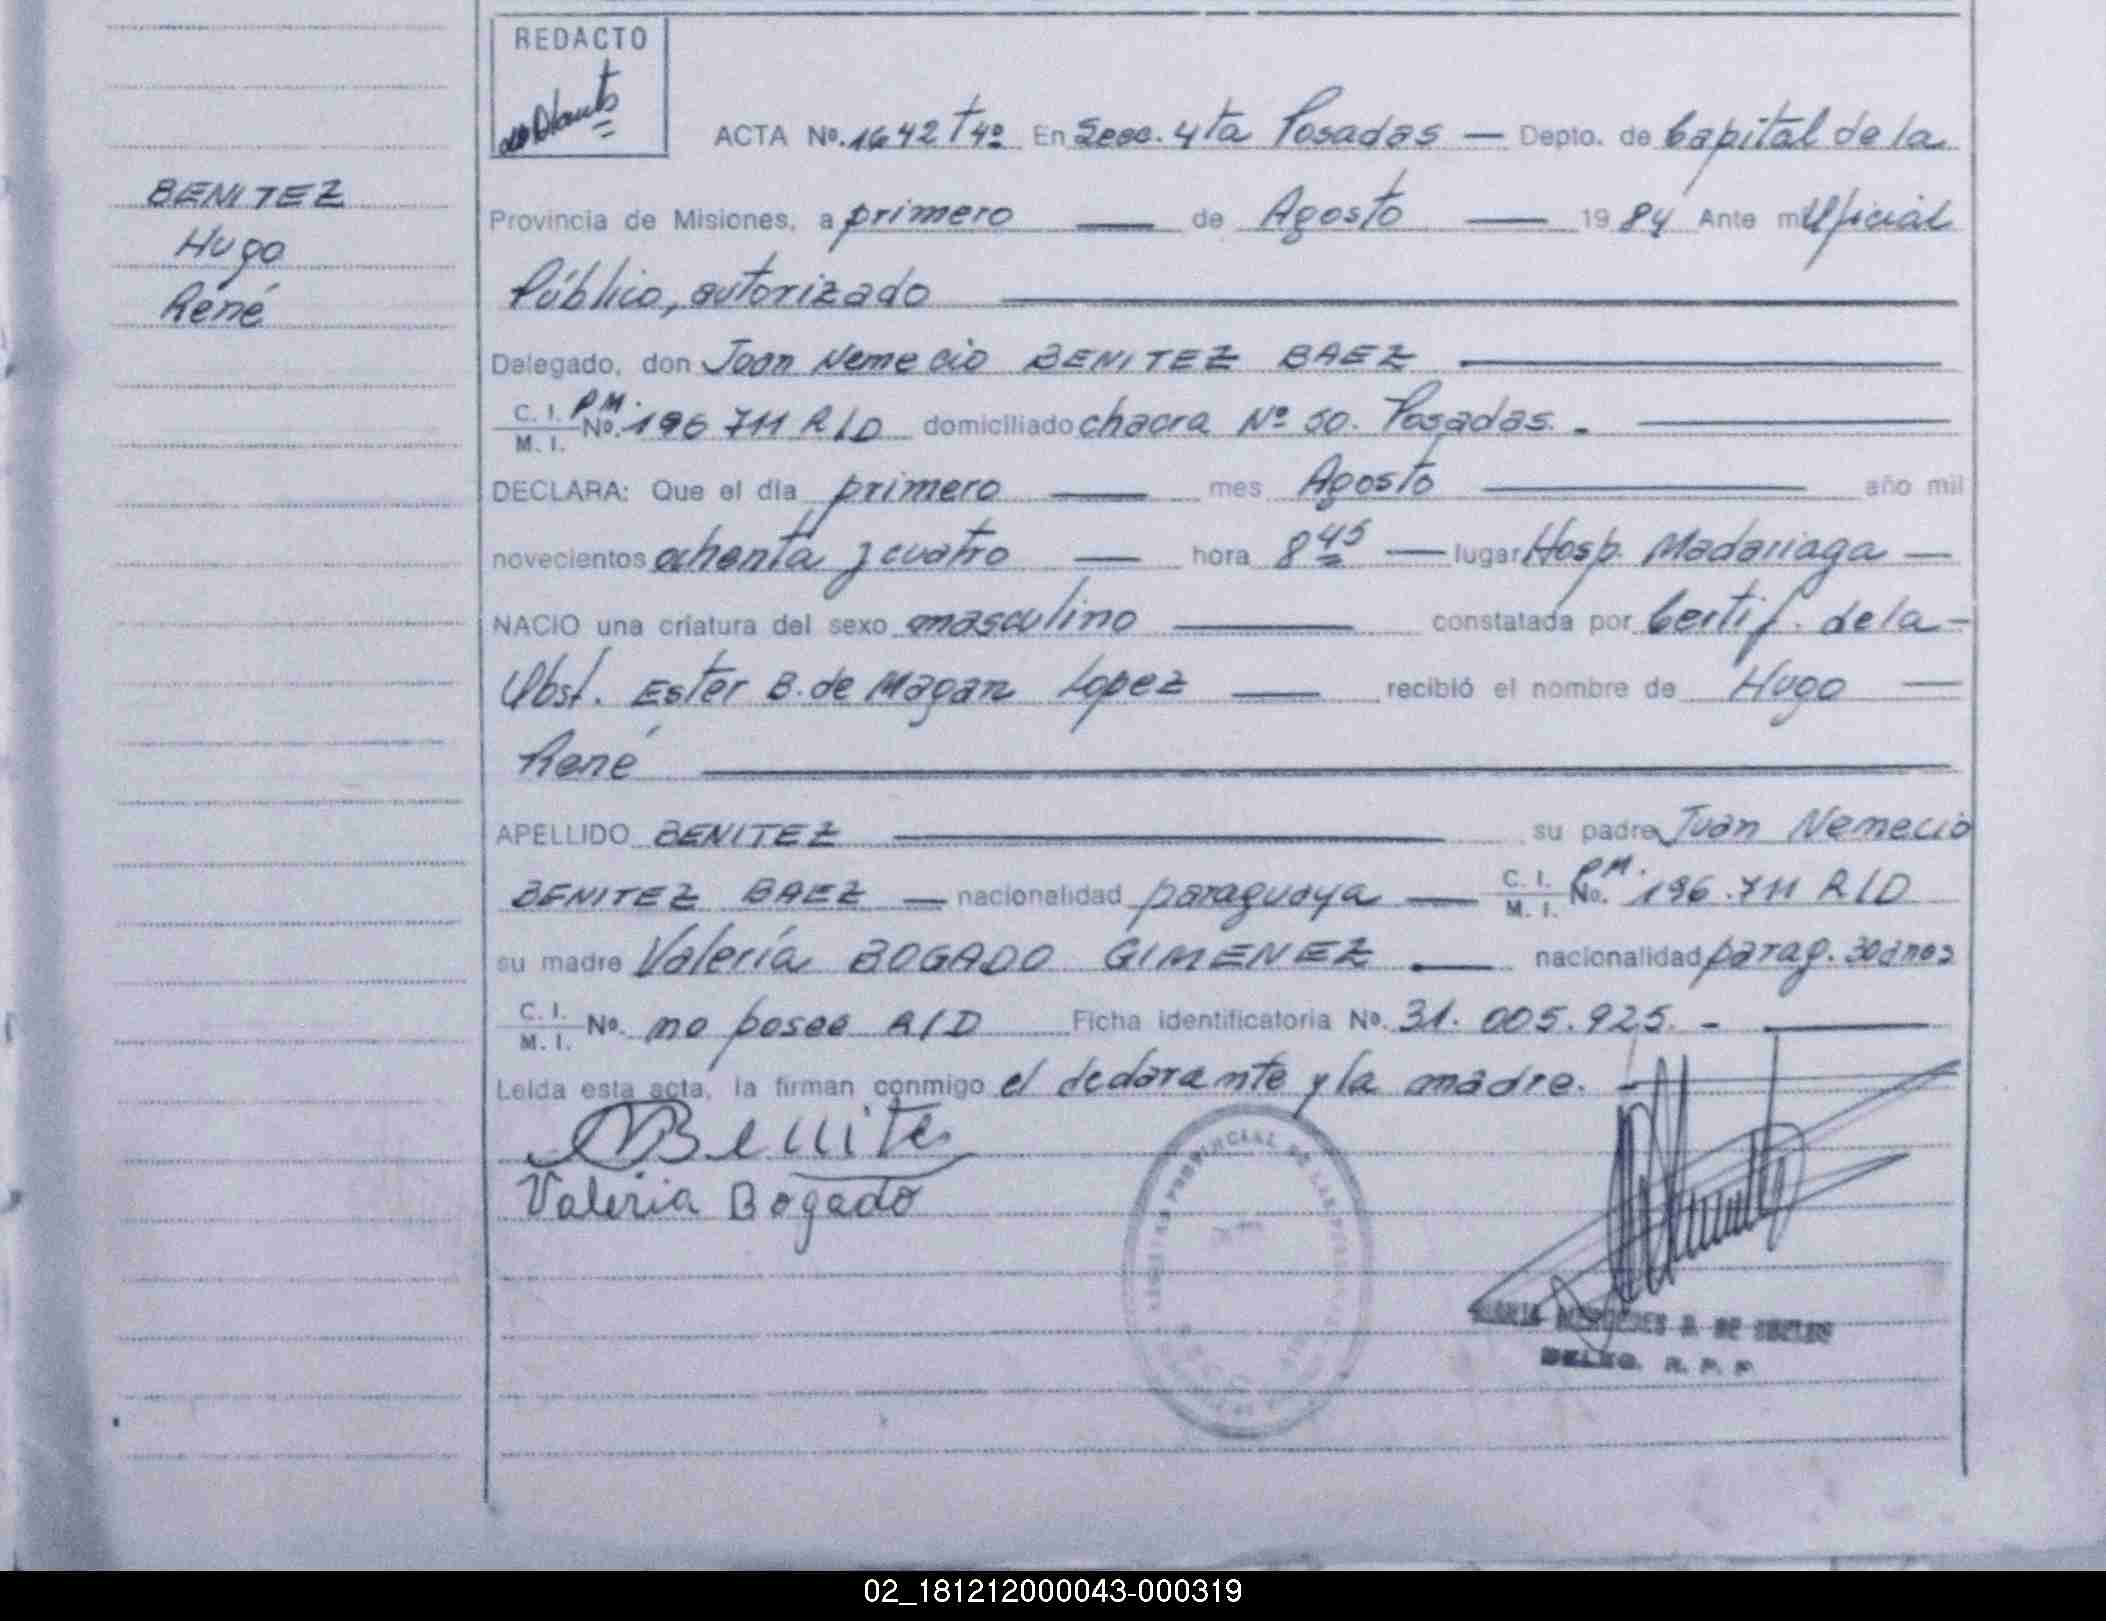 REDACTO
ACTA No. 1642 Tº4º En Secc. 4ta Posadas — Depto. de Capital de la
BENITEZ
Hugo
René
Provincia de Misiones, a primero — de Agosto — 1984 Ante mi Oficial
Público, autorizado
Delegado, don Joan Nemecio BENITEZ BAEZ
C. I. M. I. P.M. No. 196 711 R/D domiciliado chacra Nº 50. Posadas. -
DECLARA: Que el día primero — mes Agosto — año mil
novecientos ochenta y cuatro — hora 8 45 — lugar Hosp. Madariaga —
NACIO una criatura del sexo masculino — constatada por Certif. de la -
Obst. Ester B. de Magan Lopez — recibió el nombre de Hugo —
René
APELLIDO BENITEZ — su padre Juan Nemecio
BENITEZ BAEZ — nacionalidad paraguaya — C. I. M. I. P.M. No. 196.711 R/D
su madre Valeria BOGADO GIMENEZ — nacionalidad parag. 30 años
C. I. M. I. No. no posee R/D Ficha identificatoria No. 31.005.925. -
Leída esta acta, la firman conmigo el declarante y la madre. -
Benite
Valeria Bogado
MARIA MERCEDES
DELEG. R. P. P.
02_181212000043-000319